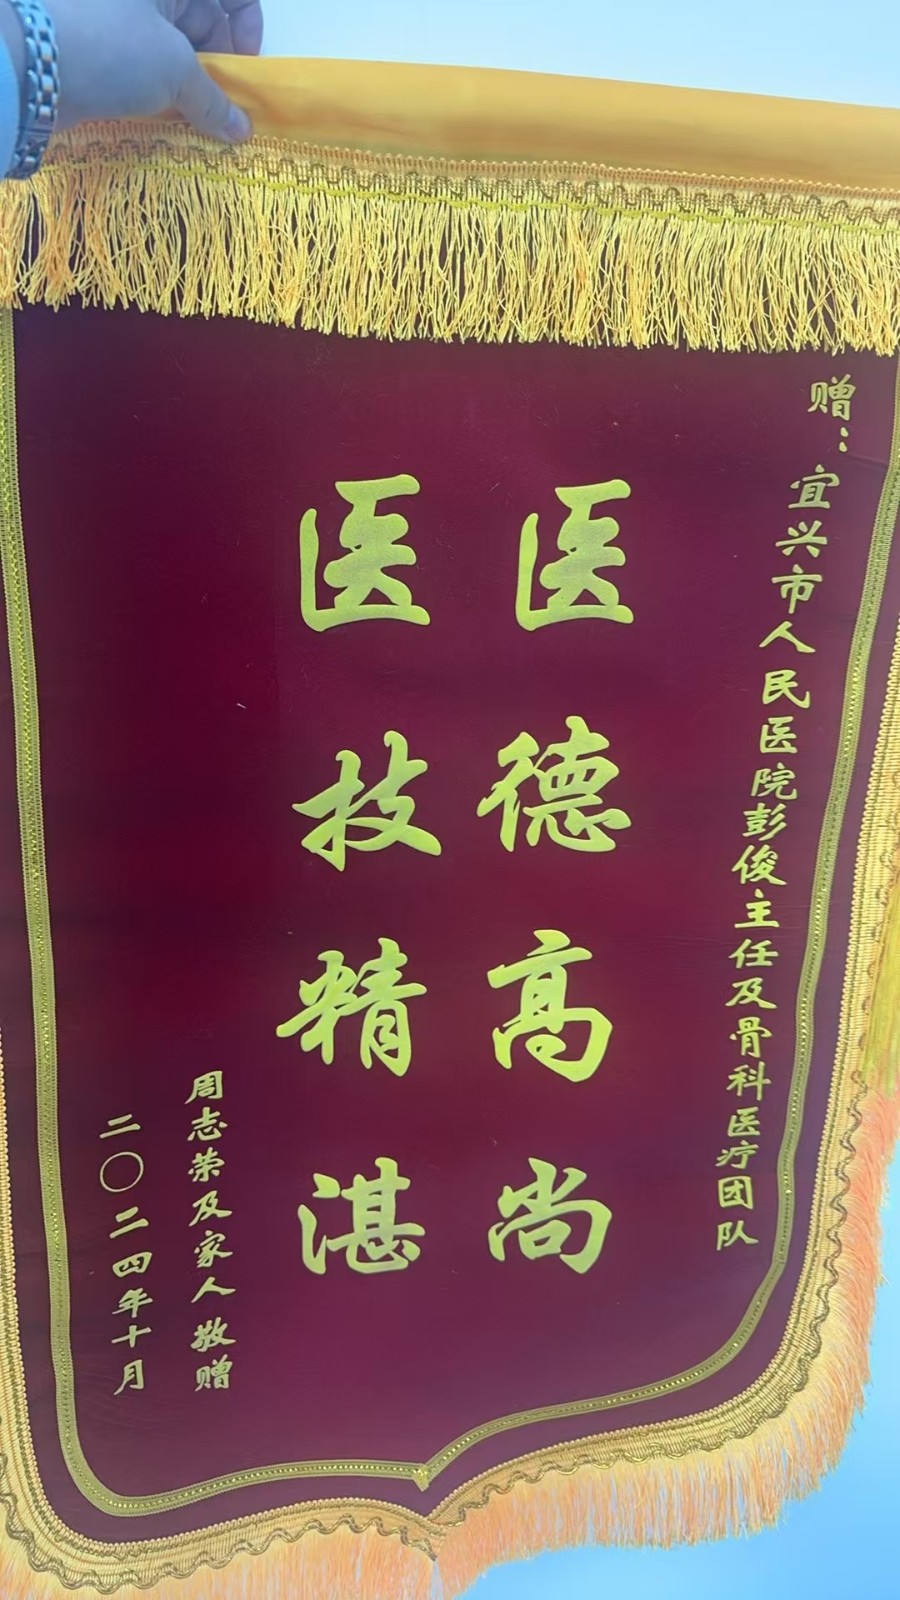 赠：宜兴市人民医院彭俊主任及骨科医疗团队
医德高尚
医技精湛
周志荣及家人敬赠
二〇二四年十月